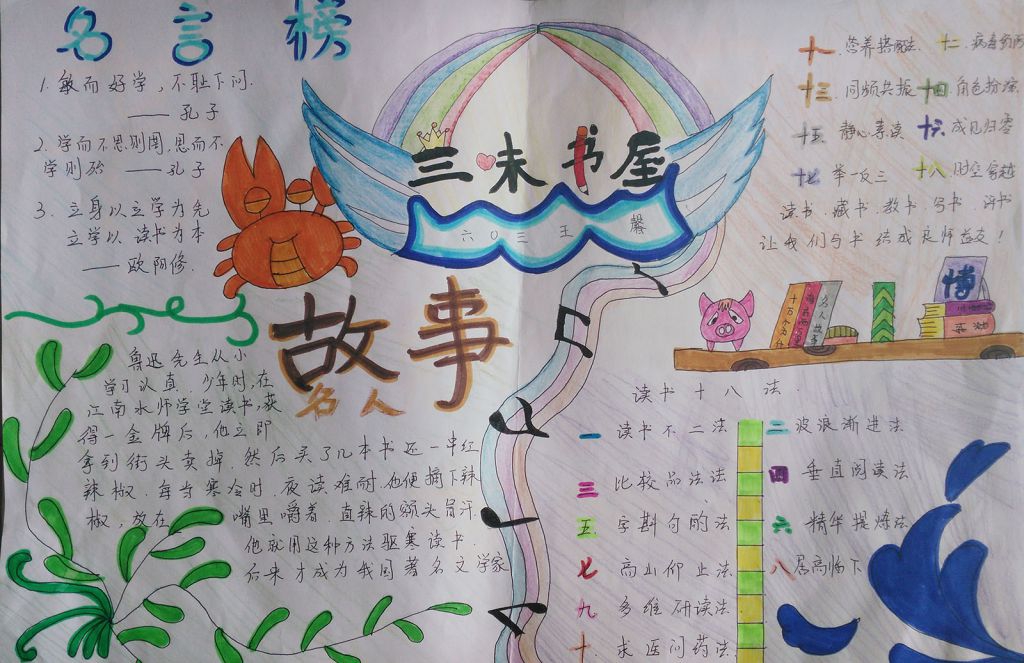 名言榜
1. 敏而好学，不耻下问.
—— 孔子
2. 学而不思则罔,思而不
学则殆 —— 孔子
3. 立身以立学为先
立学以读书为本
—— 欧阳修.
三味书屋
六〇三 王 馨
故事
名人
鲁迅先生从小
学习认真.少年时,在
江南水师学堂读书,获
得一金牌后,他立即
拿到街头卖掉.然后买了几本书还一串红
辣椒.每当寒冷时.夜读难耐.他便摘下辣
椒，放在嘴里嚼着.直辣的额头冒汗.
他就用这种方法驱寒读书.
后来才成为我国著名文学家
十一 营养搭配法 十二
十三 同频共振 十四 角色扮演
十五 静心素读 十六 成见归零
十七 举一反三 十八 时空穿越
读书.藏书.教书.写书.评书
让我们与书结成良师益友！
十万个为什
名人故事
博
读书十八法.
一 读书不二法 二 波浪渐进法
三 比较品法法 四 垂直阅读法
五 字斟句酌法 六 精华提炼法
七 高山仰止法 八 居高临下
九 多维研读法
十. 求医问药法